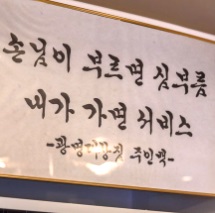 손님이 부르면 심부름
내가 가면 서비스
-광명곱창집 주인백-